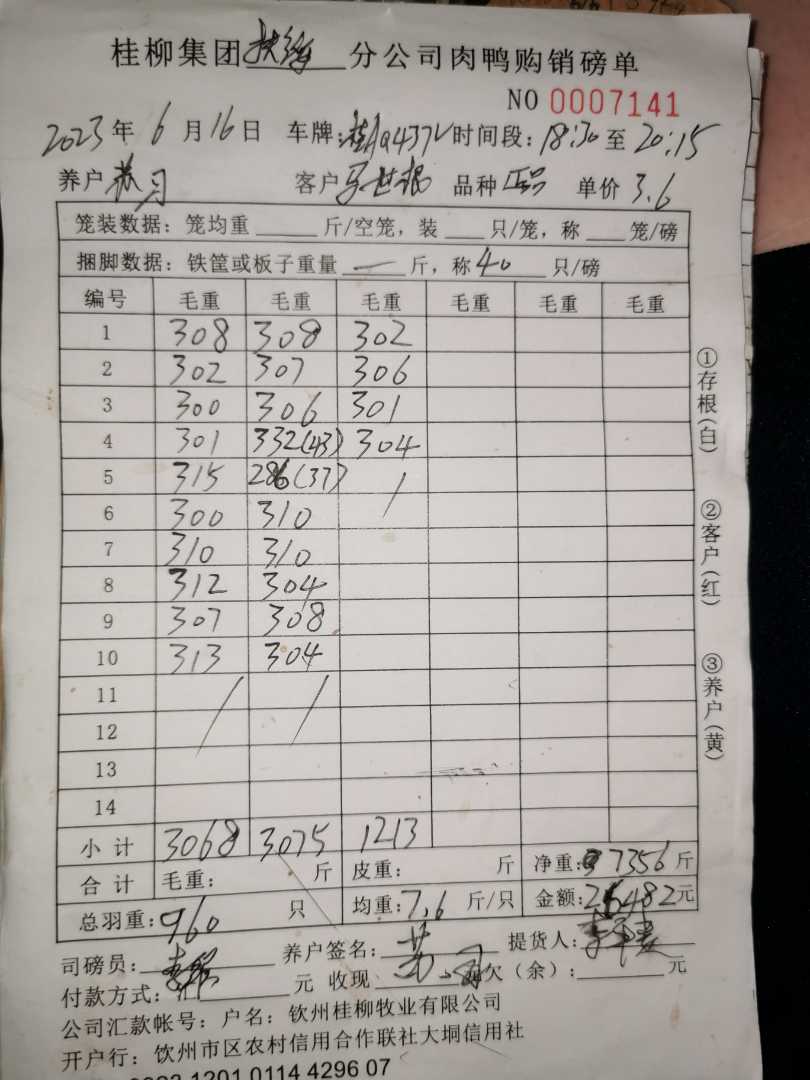 桂柳集团扶绥分公司肉鸭购销磅单
NO 0007141
2023年6月16日 车牌: 时间段:18:30至20:15
养户苏习 客户 品种 单价3.6
笼装数据: 笼均重 斤/空笼, 装 只/笼, 称 笼/磅
捆脚数据: 铁筐或板子重量 — 斤, 称40 只/磅
编号 毛重 毛重 毛重 毛重 毛重 毛重
1 308 308 302
2 302 307 306
3 300 306 301
4 301 332(43) 304
5 315 286(37) /
6 300 310
7 310 310
8 312 304
9 307 308
10 313 304
11 / /
12
13
14
小计 3068 3075 1213
合计 毛重: 斤 皮重: 斤 净重:7356斤
总羽重:960 只 均重:7.6 斤/只 金额:26482元
司磅员: 养户签名: 提货人:
付款方式: 元 收现 欠(余): 元
公司汇款帐号: 户名: 钦州桂柳牧业有限公司
开户行: 钦州市区农村信用合作联社大垌信用社
1201 0114 4296 07
①存根(白)
②客户(红)
③养户(黄)